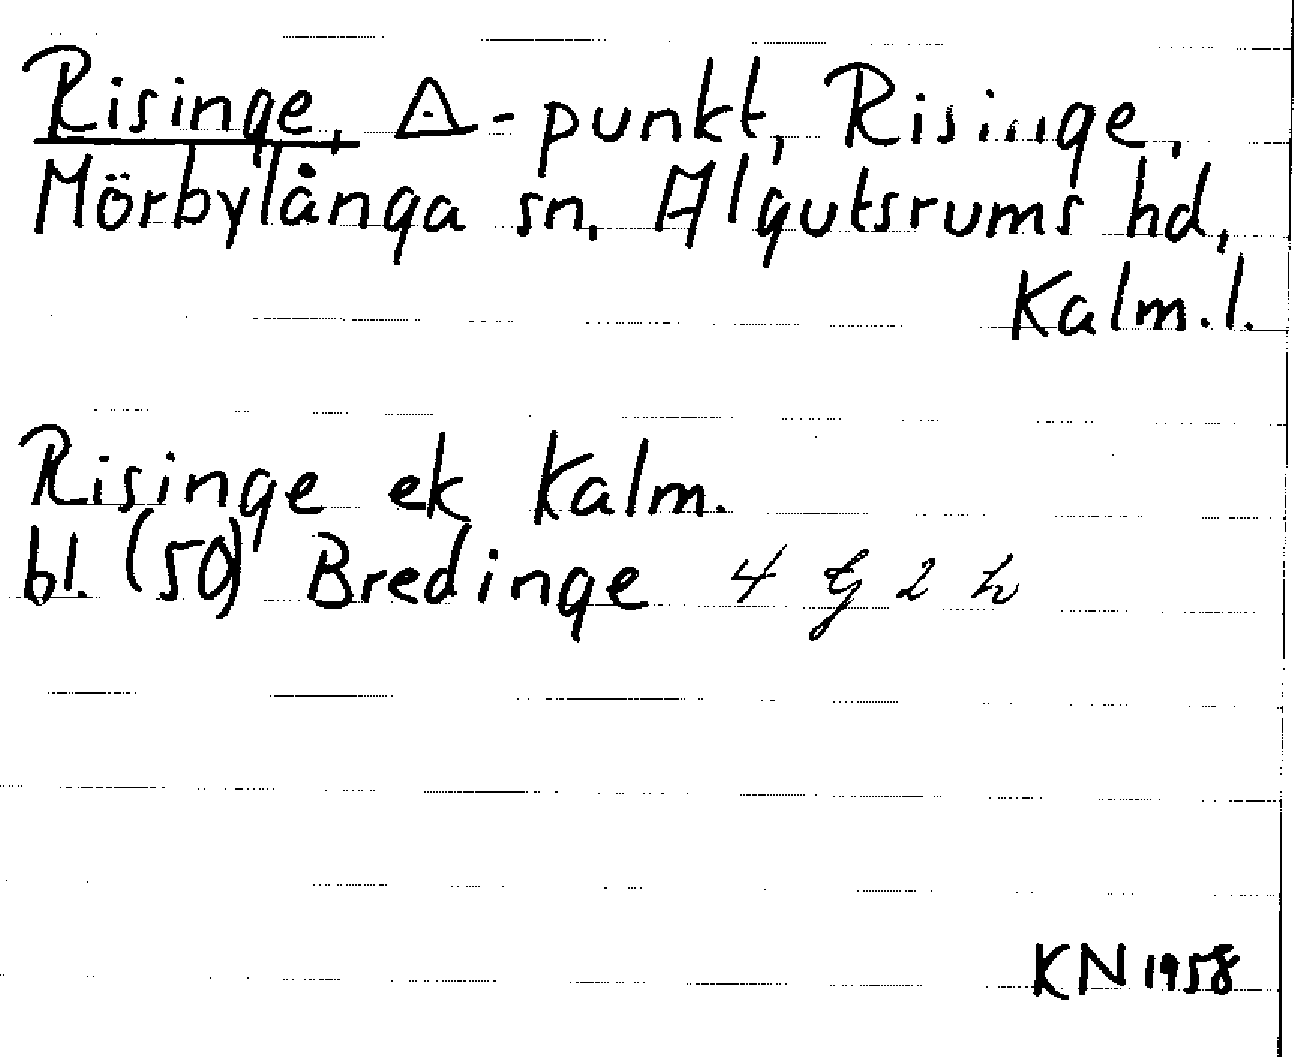 Risinge, △-punkt, Risinge,
Mörbylånga sn, Algutsrums hd,
Kalm. l.
Risinge ek Kalm.
bl. (50) Bredinge 4 G 2 h
KN 1958